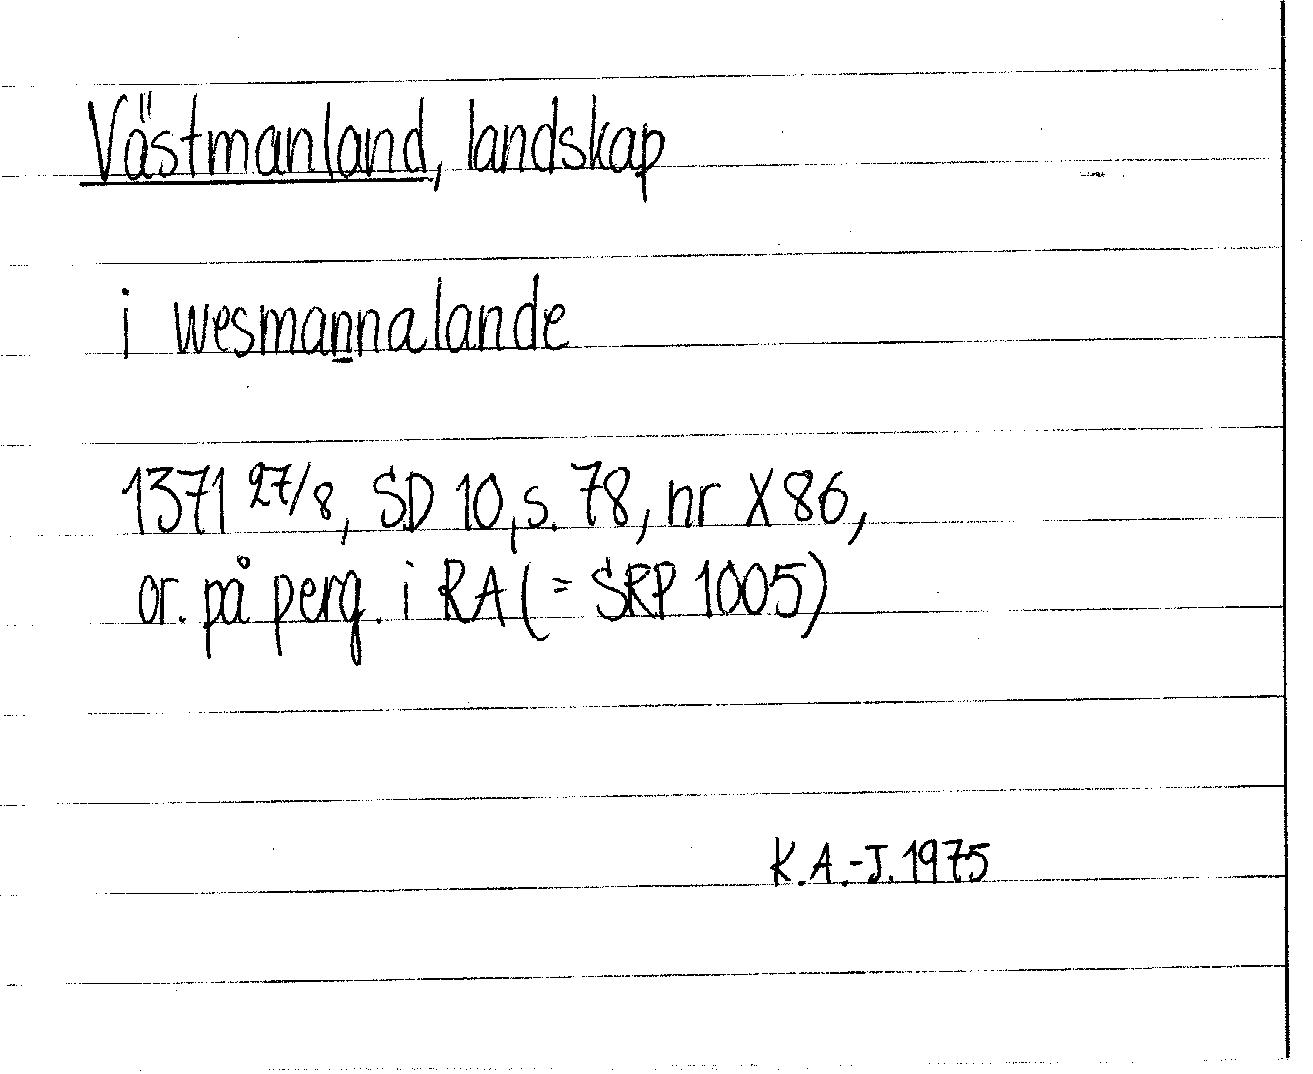 Västmanland, landskap
i wesmannalande
1371 27/8, SD 10, s. 78, nr X 86,
or. på perg. i RA (= SRP 1005)
K.A.-J. 1975